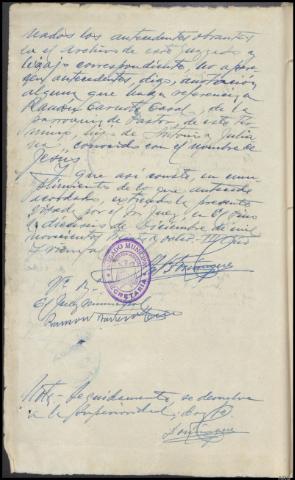 los antecedentes obrantes
en el archivo de este Juzgado y
legajo correspondiente, no apare-
cen antecedentes, digo, anotación
alguna que haga referencia a
Ramón Carnota Casal, de la
parroquia de Pastor, de este tér
mino, hijo de Antonia Julia
na, conocido con el nombre de
Jesús.
Y que así conste, en cum-
plimiento de lo que antecede
acordado, extiendo la presente
por el Sr. Juez, en el Pino
a dieciseis de Diciembre de mil
novecientos
JUZGADO MUNICIPAL
SECRETARIA
Vº. Bº.-
El Juez Municipal
Ramón
Nota.- Seguidamente, se devuelve
a la Superioridad; doy fe